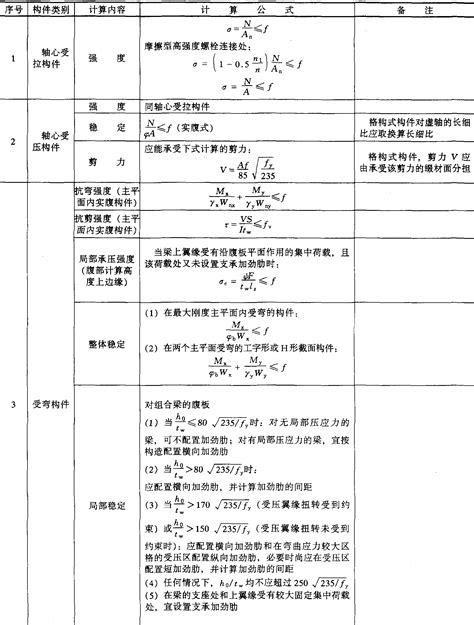 序号 构件类别 计算内容 计算公式 备注
1 轴心受拉构件 强度
σ=N/Aₙ≤f
摩擦型高强度螺栓连接处:
σ=(1-0.5 n₁/n) N/Aₙ≤f
σ=N/A≤f
2 轴心受压构件
强度 同轴心受拉构件
稳定 N/φA≤f (实腹式) 格构式构件对虚轴的长细
比应取换算长细比
剪力 应能承受下式计算的剪力:
V=Af/85 √(f_y/235)
格构式构件,剪力 V 应
由承受该剪力的缀材面分担
3 受弯构件
抗弯强度(主平
面内实腹构件)
Mₓ/γₓWₙₓ+M_y/γ_yW_ny≤f
抗剪强度(主平
面内实腹构件)
τ=VS/It_w≤f_v
局部承压强度
(腹部计算高
度上边缘)
当梁上翼缘受有沿腹板平面作用的集中荷载,且
该荷载处又未设置支承加劲肋时:
σ_c=ψF/t_w l_z≤f
整体稳定
(1) 在最大刚度主平面内受弯的构件:
Mₓ/φ_bWₓ≤f
(2) 在两个主平面受弯的工字形或 H 形截面构件:
Mₓ/φ_bWₓ+M_y/γ_yW_y≤f
局部稳定
对组合梁的腹板
(1) 当h₀/t_w≤80 √235/f_y时:对无局部压应力的
梁,可不配置加劲肋;对有局部压应力的梁,宜按
构造配置横向加劲肋
(2) 当h₀/t_w>80 √235/f_y时:
应配置横向加劲肋,并计算加劲肋的间距
(3) 当h₀/t_w>170 √235/f_y (受压翼缘扭转受到约
束) 或h₀/t_w>150 √235/f_y (受压翼缘扭转未受到
约束时):应配置横向加劲肋和在弯曲应力较大区
格的受压区配置纵向加劲肋,必要时尚应在受压区
配置短加劲肋,并计算加劲肋的间距
(4) 任何情况下,h₀/t_w均不应超过 250 √235/f_y
(5) 在梁的支座处和上翼缘受有较大固定集中荷载
处,宜设置支承加劲肋